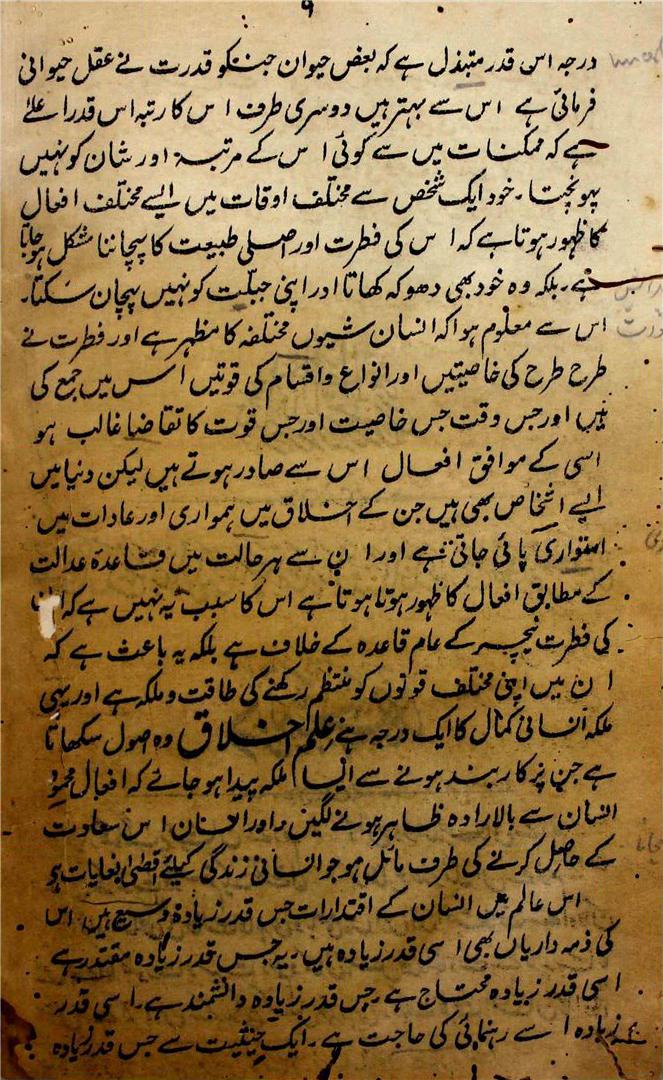 ۹
درجہ اس قدر متبذل ہے کہ بعض حیوان جنکو قدرت نے عقل حیوانی
فرمائی ہے اس سے بہتر ہیں دوسری طرف اس کا رتبہ اس قدر اعلےٰ
ہے کہ ممکنات میں سے کوئی اس کے مرتبۂ اور شان کو نہیں
پہونچتا۔ خود ایک شخص سے مختلف اوقات میں ایسے مختلف افعال
کا ظہور ہوتا ہے کہ اس کی فطرت اور اصلی طبیعت کا پہچاننا مشکل ہو جاتا
ہے۔ بلکہ وہ خود بھی دھوکہ کھاتا اور اپنی جبلّت کو نہیں پہچان سکتا۔
اس سے معلوم ہوا کہ انسان شیوں مختلفہ کا مظہر ہے اور فطرت نے
طرح طرح کی خاصیتیں اور انواع و اقسام کی قوتیں اس میں جمع کی
ہیں اور جس وقت جس خاصیت اور جس قوت کا تقاضا غالب ہو
اسی کے موافق افعال اس سے صادر ہوتے ہیں لیکن دنیا میں
ایسے اشخاص بھی ہیں جن کے اخلاق میں ہمواری اور عادات میں
استواری پائی جاتی ہے اور ان سے ہر حالت میں قاعدۂ عدالت
کے مطابق افعال کا ظہور ہوتا ہوتا ہے اس کا سبب یہ نہیں ہے کہ ان
کی فطرت نیچر کے عام قاعدہ کے خلاف ہے بلکہ یہ باعث ہے کہ
ان میں اپنی مختلف قوتوں کو منتظم رکھنے کی طاقت و ملکہ ہے اور یہی
ملکہ انسانی کمال کا ایک درجہ ہے علم اخلاق وہ اصول سکھاتا
ہے جن پر کاربند ہونے سے ایسا ملکہ پیدا ہو جائے کہ افعال محمود
انسان سے بالارادہ ظاہر ہونے لگیں۔ اور انسان اس سعادت
کے حاصل کرنے کی طرف مائل ہو جو انسانی زندگی کیلئے اقصیٰ الغایات ہو
اس عالم میں انسان کے اقتدارات جس قدر زیادہ وسیع ہیں اس
کی ذمہ داریاں بھی اسی قدر زیادہ ہیں۔ یہ جس قدر زیادہ مقتدر ہے
اسی قدر زیادہ محتاج ہے۔ جس قدر زیادہ دانشمند ہے۔ اسی قدر
زیادہ اسے رہنمائی کی حاجت ہے۔ ایک حیثیت سے جس قدر زیادہ